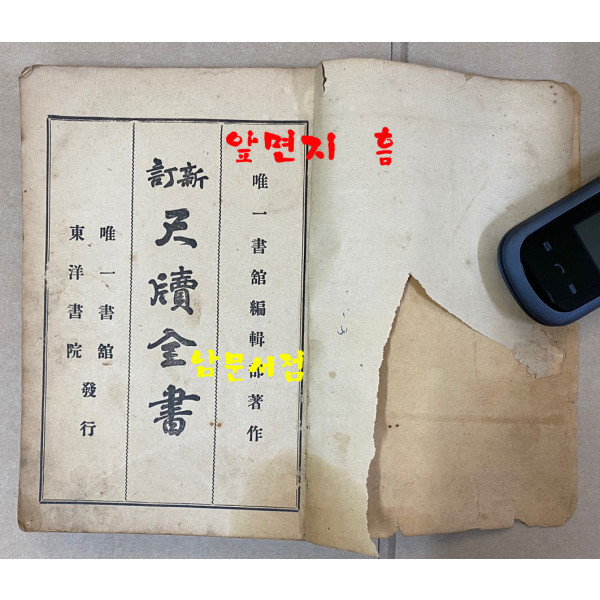 앞면지 흠
唯一書舘編輯部著作
新訂
尺牘全書
唯一書舘
東洋書院
發行
남문서점